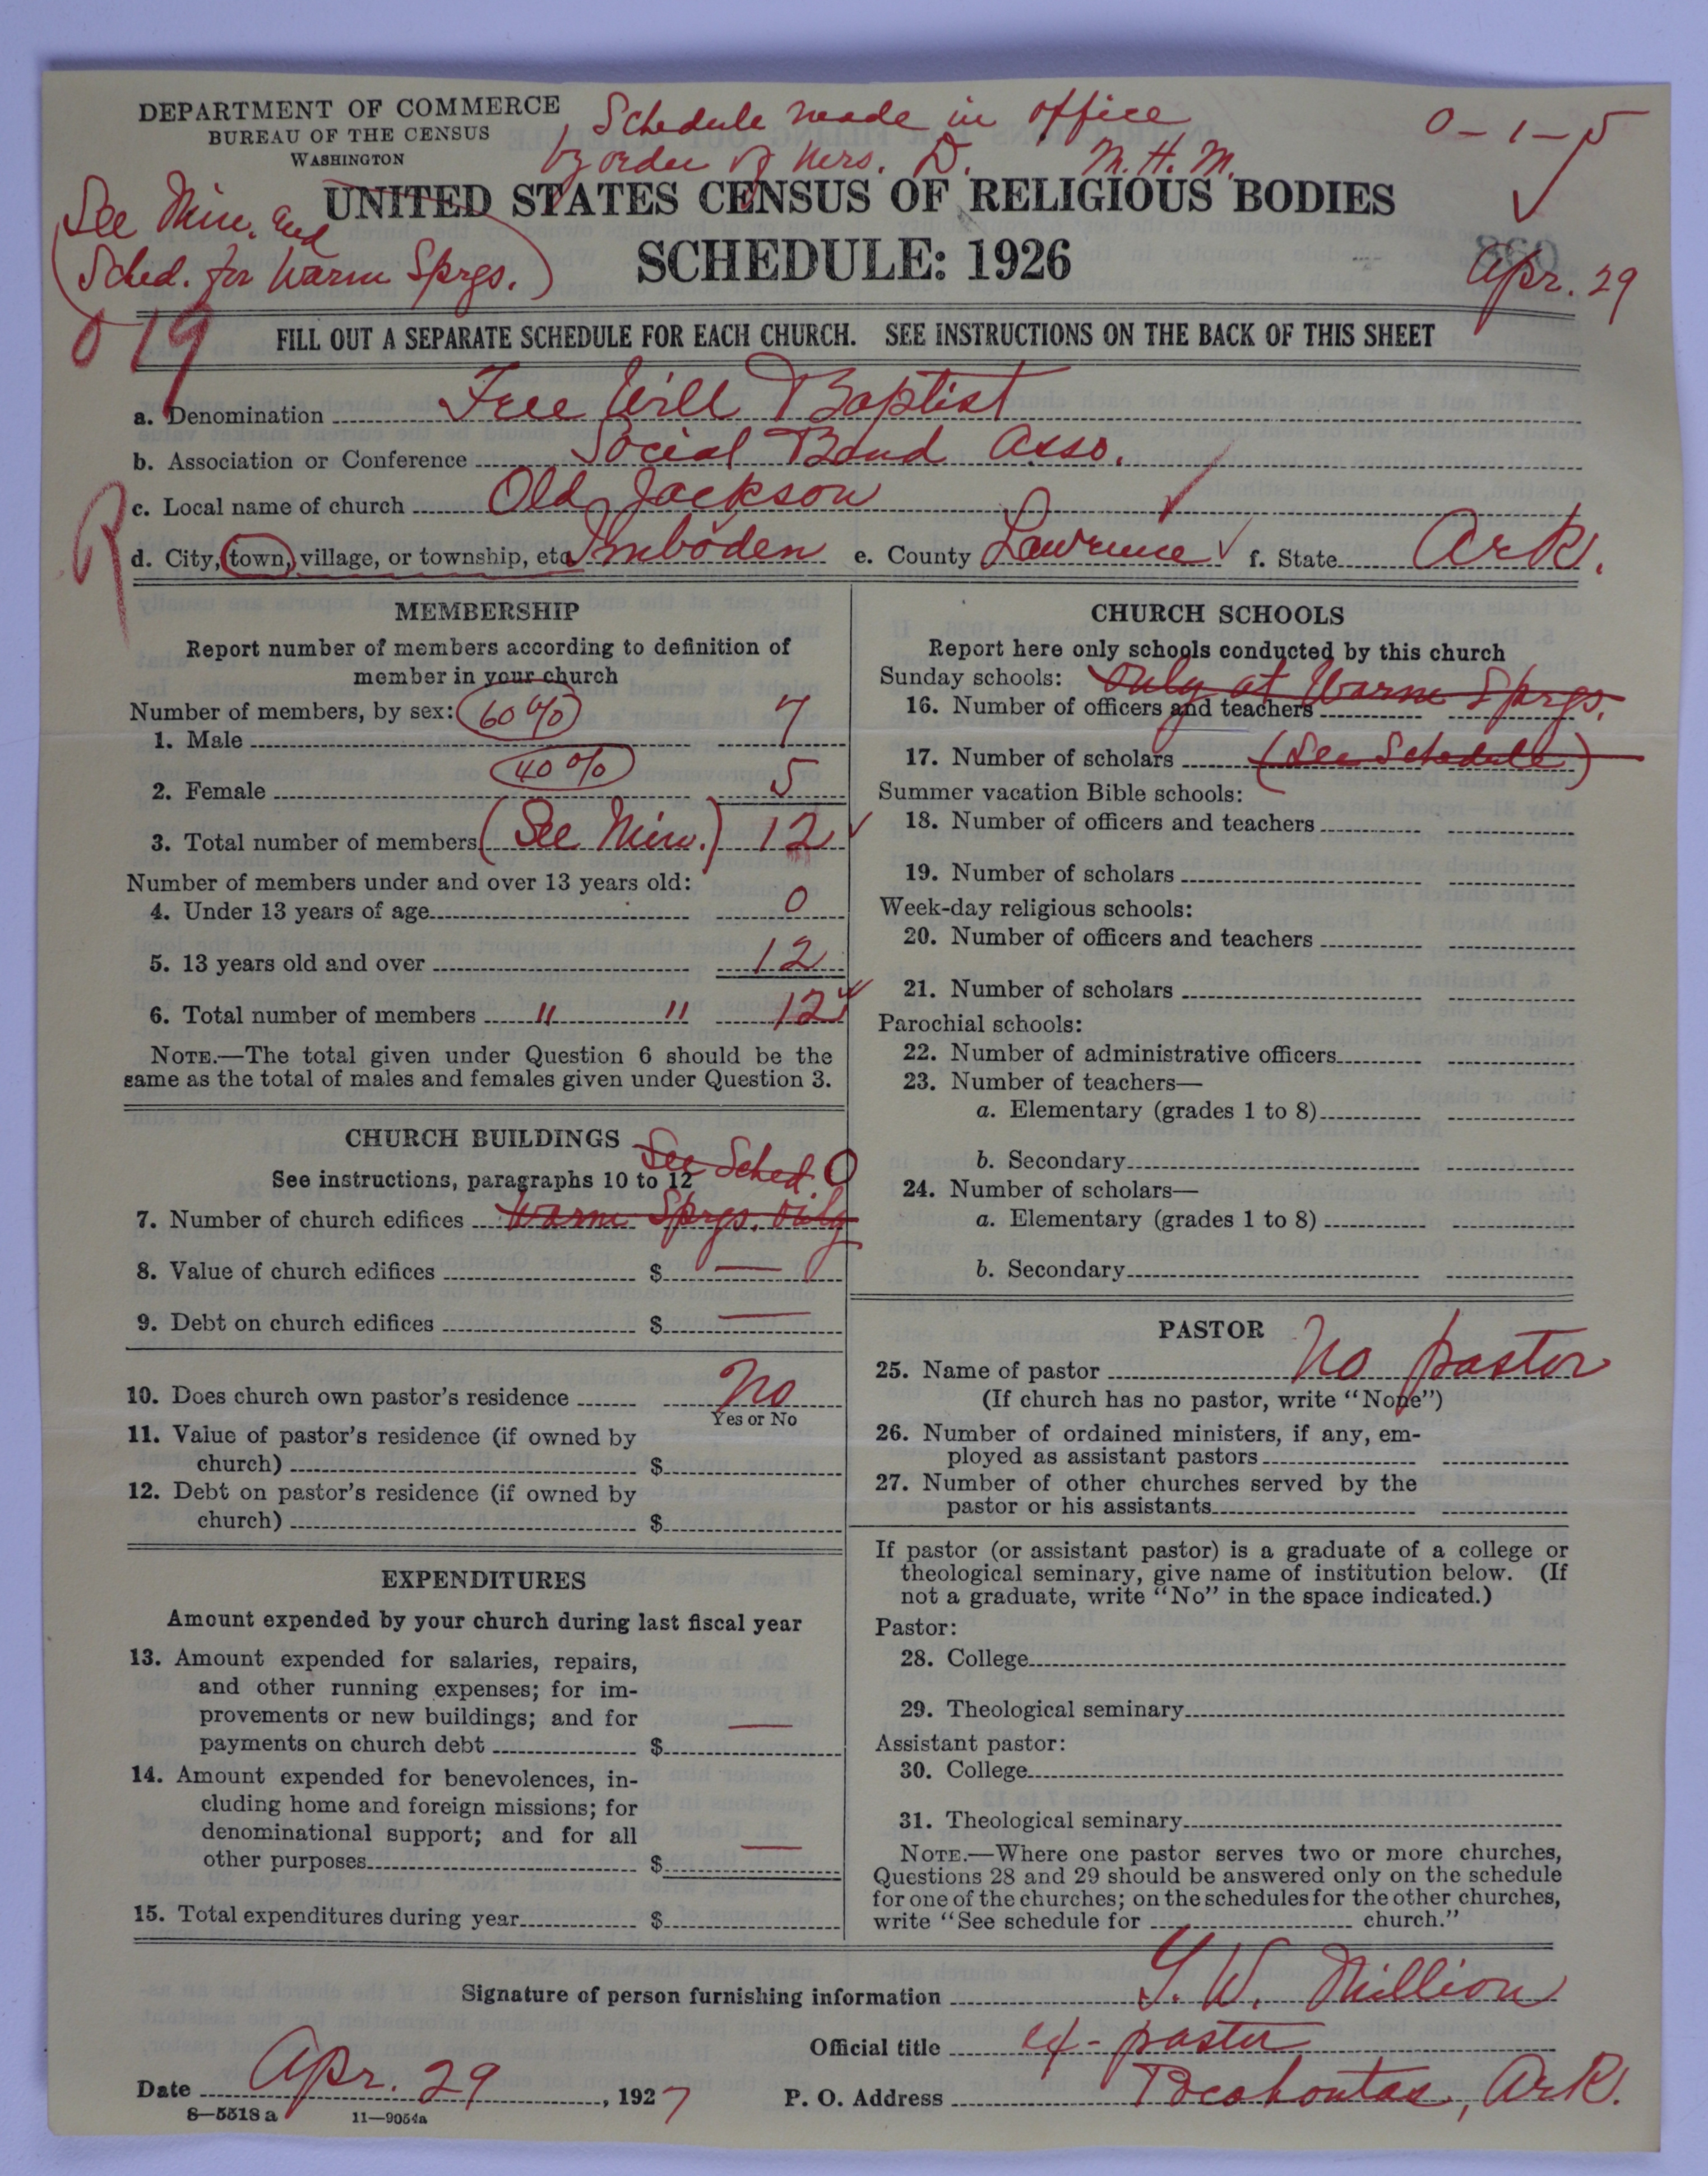 DEPARTMENT OF COMMERCE
BUREAU OF THE CENSUS
WASHINGTON
Schedule made in office
by order of Mrs. D. M.H.M.
0-1-5
See Min. and
Sched. for Warm Sprgs.)
UNITED STATES CENSUS OF RELIGIOUS BODIES
SCHEDULE: 1926
Apr. 29
019
FILL OUT A SEPARATE SCHEDULE FOR EACH CHURCH. SEE INSTRUCTIONS ON THE BACK OF THIS SHEET
a. Denomination Free Will Baptist
b. Association or Conference Social Band Asso.
c. Local name of church Old Jackson
R
d. City, town, village, or township, etc. Imboden e. County Lawrence f. State Ark.
MEMBERSHIP
Report number of members according to definition of
member in your church
Number of members, by sex: 60%
1. Male 7
40%
2. Female 5
3. Total number of members (See Min.) 12
Number of members under and over 13 years old:
4. Under 13 years of age 0
5. 13 years old and over 12
6. Total number of members " " 12
NOTE.—The total given under Question 6 should be the
same as the total of males and females given under Question 3.
CHURCH BUILDINGS
See Sched 0
See instructions, paragraphs 10 to 12
7. Number of church edifices Warm Sprgs. Only
8. Value of church edifices $ —
9. Debt on church edifices $ —
10. Does church own pastor's residence No
Yes or No
11. Value of pastor's residence (if owned by
church) $
12. Debt on pastor's residence (if owned by
church) $
EXPENDITURES
Amount expended by your church during last fiscal year
13. Amount expended for salaries, repairs,
and other running expenses; for im-
provements or new buildings; and for
payments on church debt $ —
14. Amount expended for benevolences, in-
cluding home and foreign missions; for
denominational support; and for all
other purposes $ —
15. Total expenditures during year $
CHURCH SCHOOLS
Report here only schools conducted by this church
Sunday schools: Only at Warm Sprgs.
16. Number of officers and teachers
17. Number of scholars (See Schedule)
Summer vacation Bible schools:
18. Number of officers and teachers
19. Number of scholars
Week-day religious schools:
20. Number of officers and teachers
21. Number of scholars
Parochial schools:
22. Number of administrative officers
23. Number of teachers—
a. Elementary (grades 1 to 8)
b. Secondary
24. Number of scholars—
a. Elementary (grades 1 to 8)
b. Secondary
PASTOR
25. Name of pastor No pastor
(If church has no pastor, write "None")
26. Number of ordained ministers, if any, em-
ployed as assistant pastors
27. Number of other churches served by the
pastor or his assistants
If pastor (or assistant pastor) is a graduate of a college or
theological seminary, give name of institution below. (If
not a graduate, write "No" in the space indicated.)
Pastor:
28. College
29. Theological seminary
Assistant pastor:
30. College
31. Theological seminary
NOTE.—Where one pastor serves two or more churches,
Questions 28 and 29 should be answered only on the schedule
for one of the churches; on the schedules for the other churches,
write "See schedule for church."
Signature of person furnishing information W. Million
Official title ex-pastor
Date Apr. 29, 1927 P. O. Address Pocahontas, Ark.
8—5518 a 11—9054a